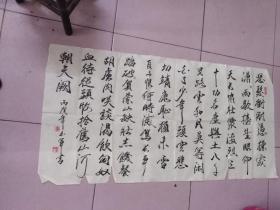 怒髮衝冠憑欄處
瀟雨歇抬望眼仰
天長嘯壯懷激烈三
十功名塵與土八千
里路雲和月莫等閑
白了少年頭空悲
切靖康恥猶未雪
臣子恨何時滅駕長車
踏破賀蘭山缺壯志飢餐
胡虜肉笑談渴飲匈奴
血待從頭收拾舊山河
朝天闕 丙戌年 書